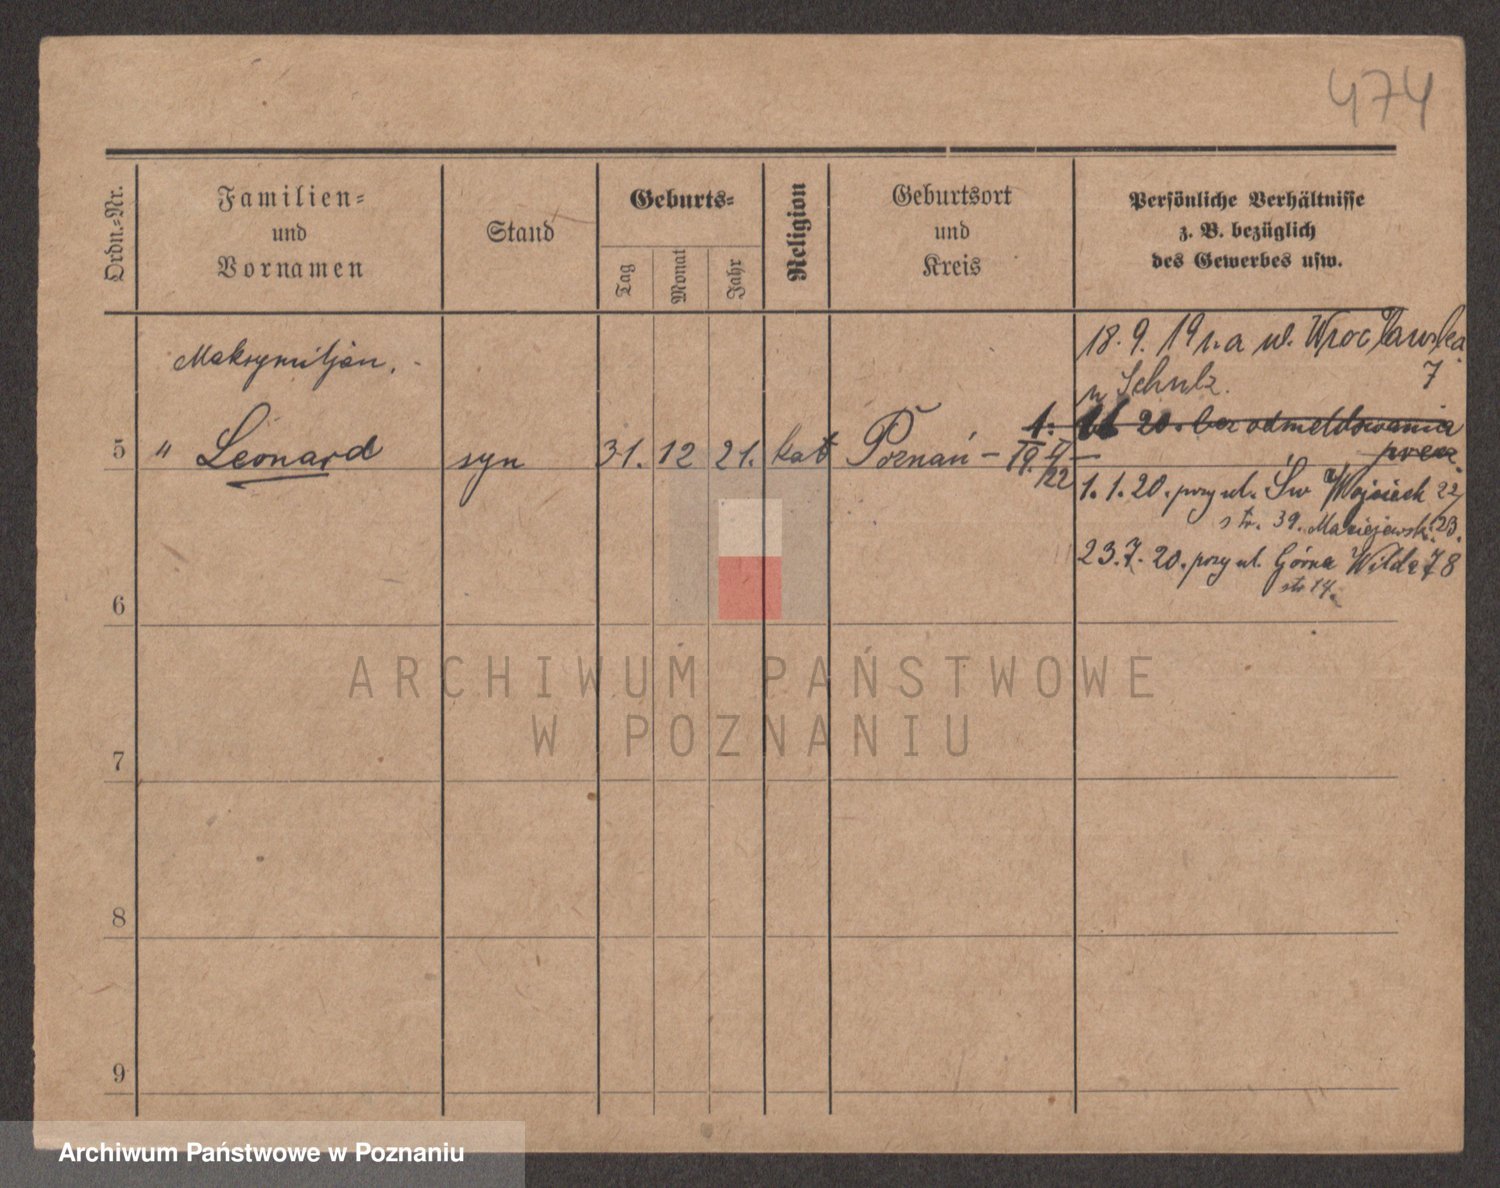 474
Ordn.-Nr.
Familien-
und
Vornamen
Stand
Geburts-
Tag
Monat
Jahr
Religion
Geburtsort
und
Kreis
Persönliche Verhältnisse
z. B. bezüglich
des Gewerbes usw.
Maksymiljan.
18. 9. 19 r. a ul. Wrocławska
7
u Schulz.
20. bez odmeldowania
5 " Leonard syn 31. 12 21. kat Poznań –
1. 1. 20. przy ul. Św Wojciech 22/
str. 39. Maciejewski 23.
23. 7. 20. przy ul. Górna Wilda 78
str 14.
6
7
8
9
ARCHIWUM PAŃSTWOWE
W POZNANIU
Archiwum Państwowe w Poznaniu